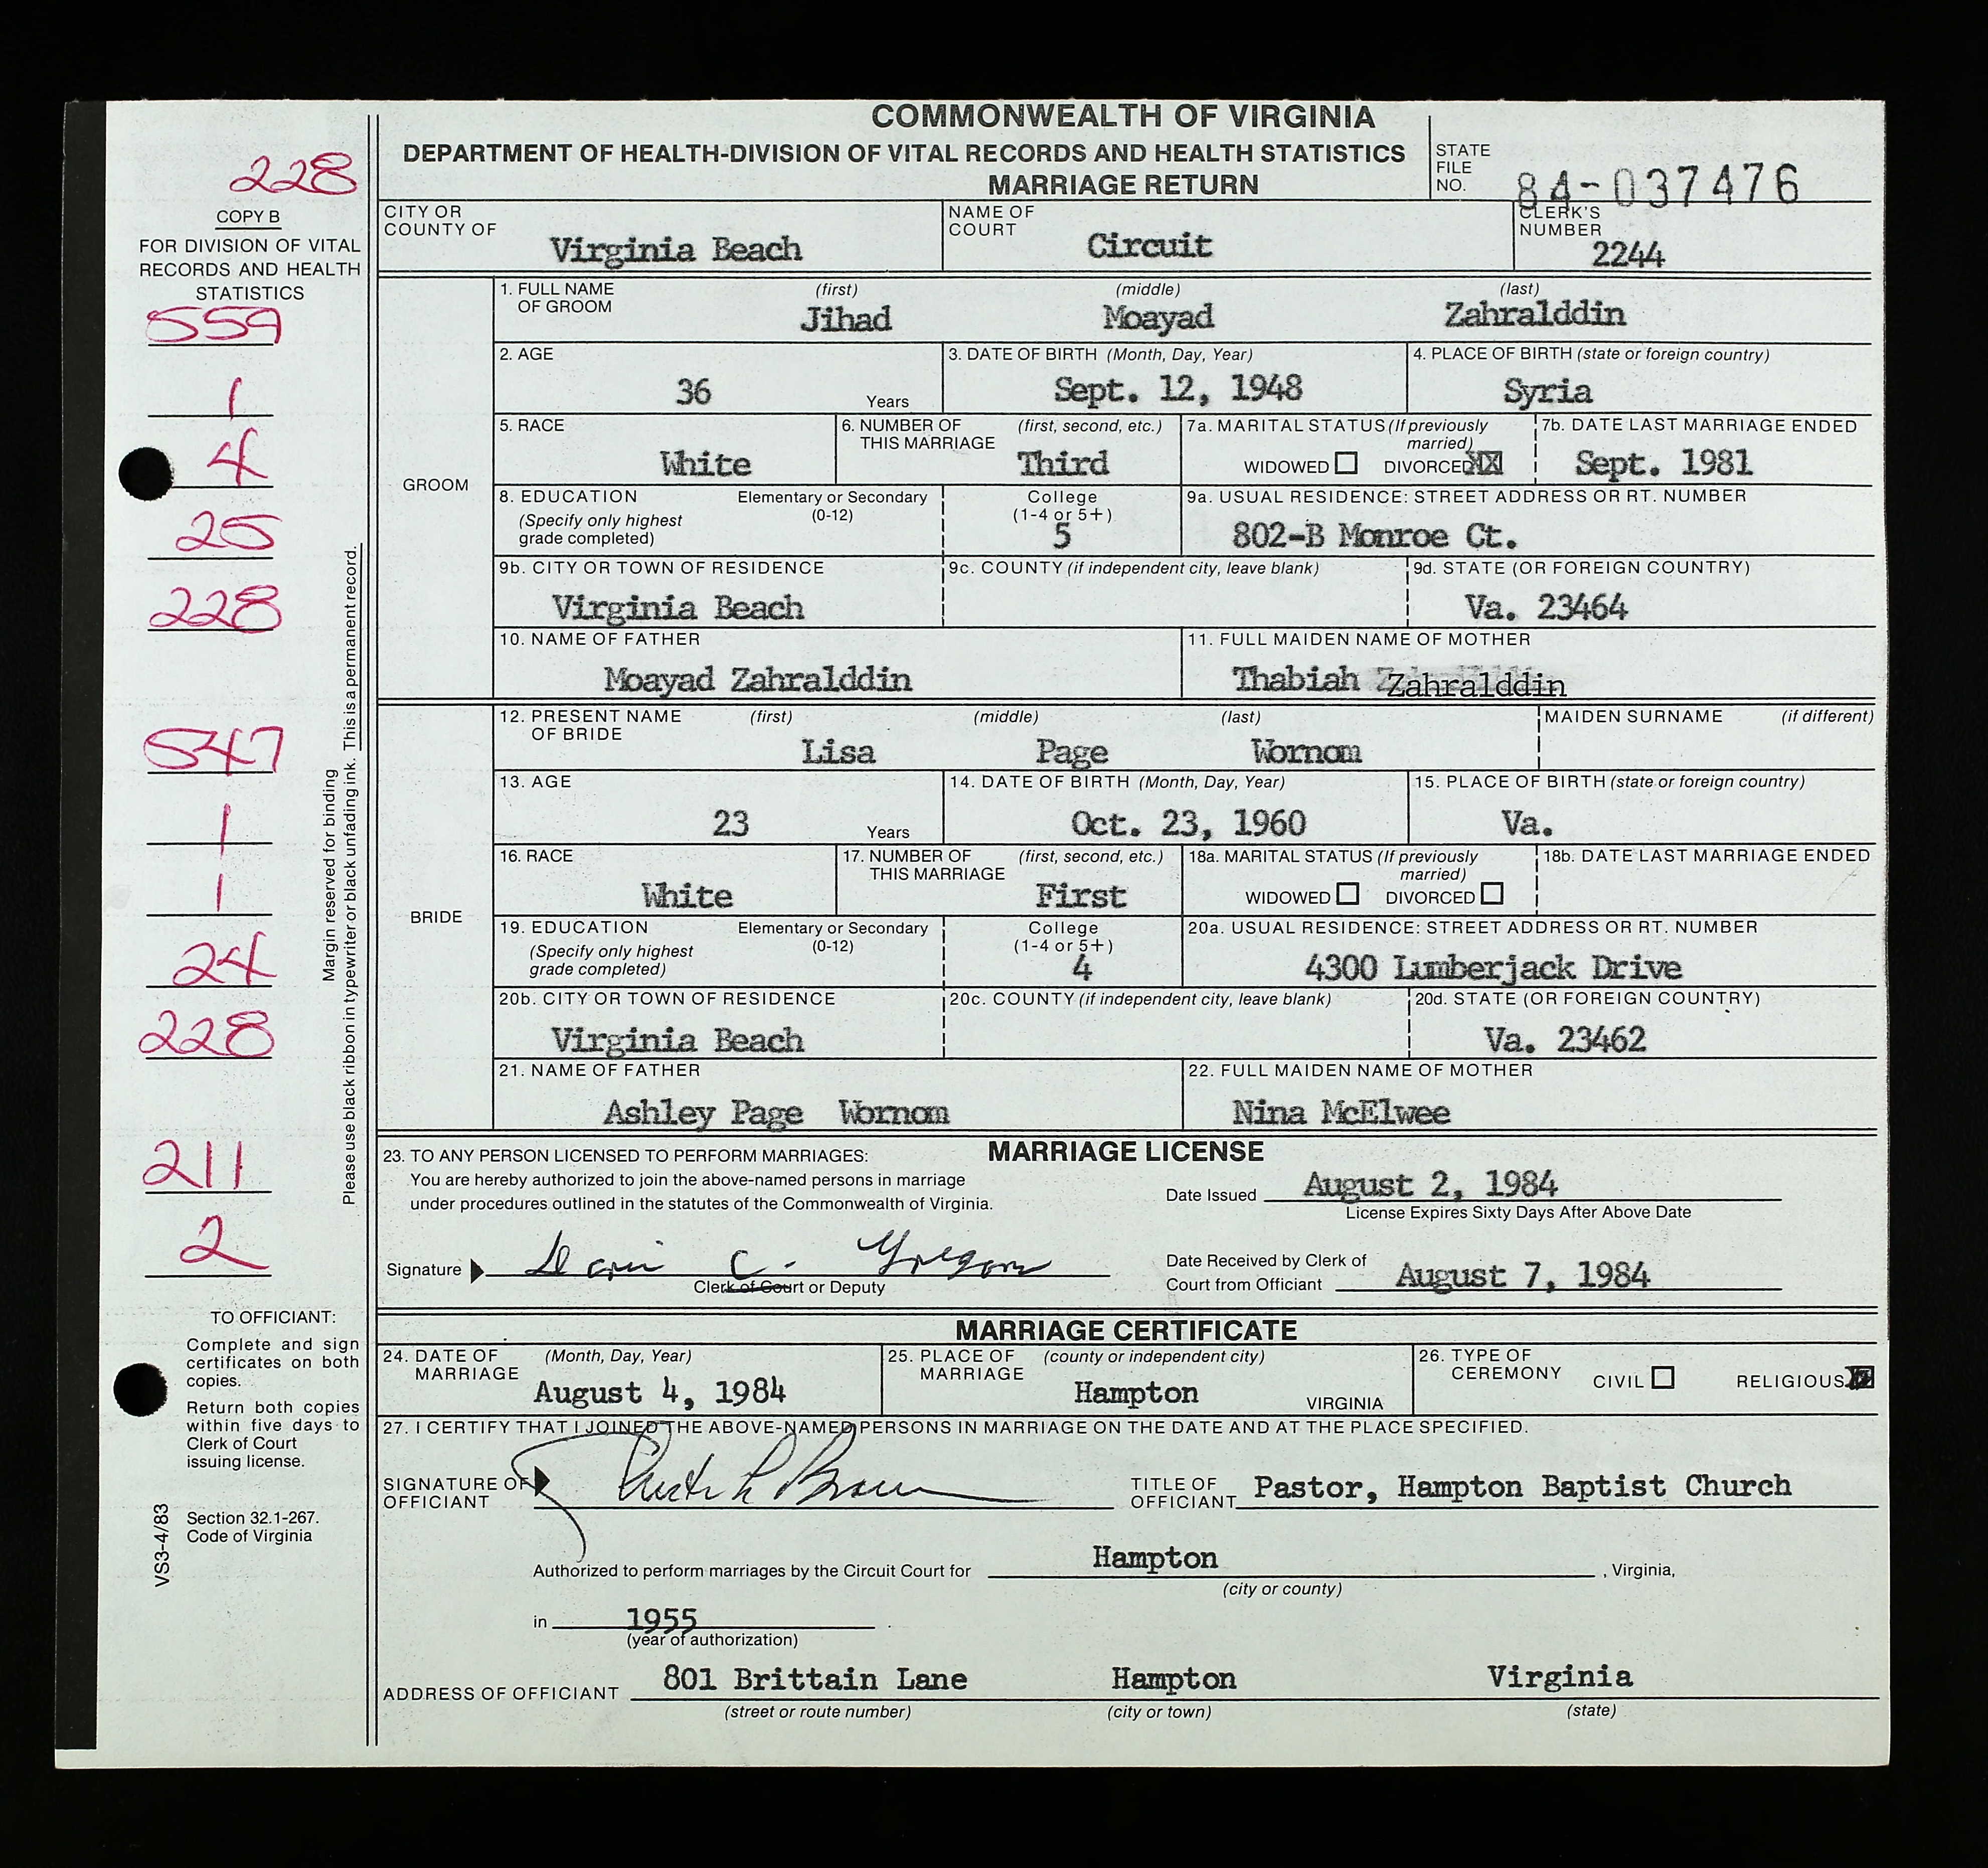 COMMONWEALTH OF VIRGINIA
DEPARTMENT OF HEALTH-DIVISION OF VITAL RECORDS AND HEALTH STATISTICS
MARRIAGE RETURN
STATE FILE NO. 84-037476
228
COPY B
FOR DIVISION OF VITAL
RECORDS AND HEALTH
STATISTICS
559
1
4
25
228
547
1
1
24
228
211
2
Margin reserved for binding
Please use black ribbon in typewriter or black unfading ink. This is a permanent record.
TO OFFICIANT:
Complete and sign
certificates on both
copies.
Return both copies
within five days to
Clerk of Court
issuing license.
Section 32.1-267.
Code of Virginia
VS3-4/83
CITY OR COUNTY OF Virginia Beach
NAME OF COURT Circuit
CLERK'S NUMBER 2244
GROOM
1. FULL NAME OF GROOM (first) Jihad (middle) Moayad (last) Zahralddin
2. AGE 36 Years
3. DATE OF BIRTH (Month, Day, Year) Sept. 12, 1948
4. PLACE OF BIRTH (state or foreign country) Syria
5. RACE White
6. NUMBER OF THIS MARRIAGE (first, second, etc.) Third
7a. MARITAL STATUS (If previously married) WIDOWED DIVORCED XX
7b. DATE LAST MARRIAGE ENDED Sept. 1981
8. EDUCATION (Specify only highest grade completed) Elementary or Secondary (0-12) College (1-4 or 5+) 5
9a. USUAL RESIDENCE: STREET ADDRESS OR RT. NUMBER 802-B Monroe Ct.
9b. CITY OR TOWN OF RESIDENCE Virginia Beach
9c. COUNTY (if independent city, leave blank)
9d. STATE (OR FOREIGN COUNTRY) Va. 23464
10. NAME OF FATHER Moayad Zahralddin
11. FULL MAIDEN NAME OF MOTHER Thabiah Zahralddin
BRIDE
12. PRESENT NAME OF BRIDE (first) Lisa (middle) Page (last) Wornom
MAIDEN SURNAME (if different)
13. AGE 23 Years
14. DATE OF BIRTH (Month, Day, Year) Oct. 23, 1960
15. PLACE OF BIRTH (state or foreign country) Va.
16. RACE White
17. NUMBER OF THIS MARRIAGE (first, second, etc.) First
18a. MARITAL STATUS (If previously married) WIDOWED DIVORCED
18b. DATE LAST MARRIAGE ENDED
19. EDUCATION (Specify only highest grade completed) Elementary or Secondary (0-12) College (1-4 or 5+) 4
20a. USUAL RESIDENCE: STREET ADDRESS OR RT. NUMBER 4300 Lumberjack Drive
20b. CITY OR TOWN OF RESIDENCE Virginia Beach
20c. COUNTY (if independent city, leave blank)
20d. STATE (OR FOREIGN COUNTRY) Va. 23462
21. NAME OF FATHER Ashley Page Wornom
22. FULL MAIDEN NAME OF MOTHER Nina McElwee
MARRIAGE LICENSE
23. TO ANY PERSON LICENSED TO PERFORM MARRIAGES:
You are hereby authorized to join the above-named persons in marriage
under procedures outlined in the statutes of the Commonwealth of Virginia.
Date Issued August 2, 1984
License Expires Sixty Days After Above Date
Signature C.
Clerk of Court or Deputy
Date Received by Clerk of
Court from Officiant August 7, 1984
MARRIAGE CERTIFICATE
24. DATE OF MARRIAGE (Month, Day, Year) August 4, 1984
25. PLACE OF MARRIAGE (county or independent city) Hampton VIRGINIA
26. TYPE OF CEREMONY CIVIL RELIGIOUS
27. I CERTIFY THAT I JOINED THE ABOVE-NAMED PERSONS IN MARRIAGE ON THE DATE AND AT THE PLACE SPECIFIED.
SIGNATURE OF OFFICIANT L Brown
TITLE OF OFFICIANT Pastor, Hampton Baptist Church
Authorized to perform marriages by the Circuit Court for Hampton, Virginia,
(city or county)
in 1955
(year of authorization)
ADDRESS OF OFFICIANT 801 Brittain Lane Hampton Virginia
(street or route number) (city or town) (state)